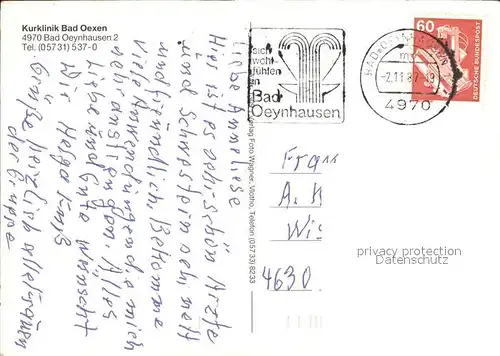 Kurklinik Bad Oexen
4970 Bad Oeynhausen 2
Tel. (05731) 537-0
Liebe Anneliese
Hier ist es sehr schön Ärzte
und Schwestern sehr nett
und freundlich. Bekomme
viele Anwendungen die mich
sehr anstrengen. Alles
Liebe und Gute wünscht
Dir Helga
Grüße herzlich alle Frauen
der Gruppe
sich
wohl-
fühlen
in
Bad
Oeynhausen
BAD OEYNHAUSEN 1
-2.11.87-19
4970
60
DEUTSCHE BUNDESPOST
Foto Wagner, Vlotho, Telefon (05733) 8233
Frau
A. K
Wi
4630
privacy protection
watermark